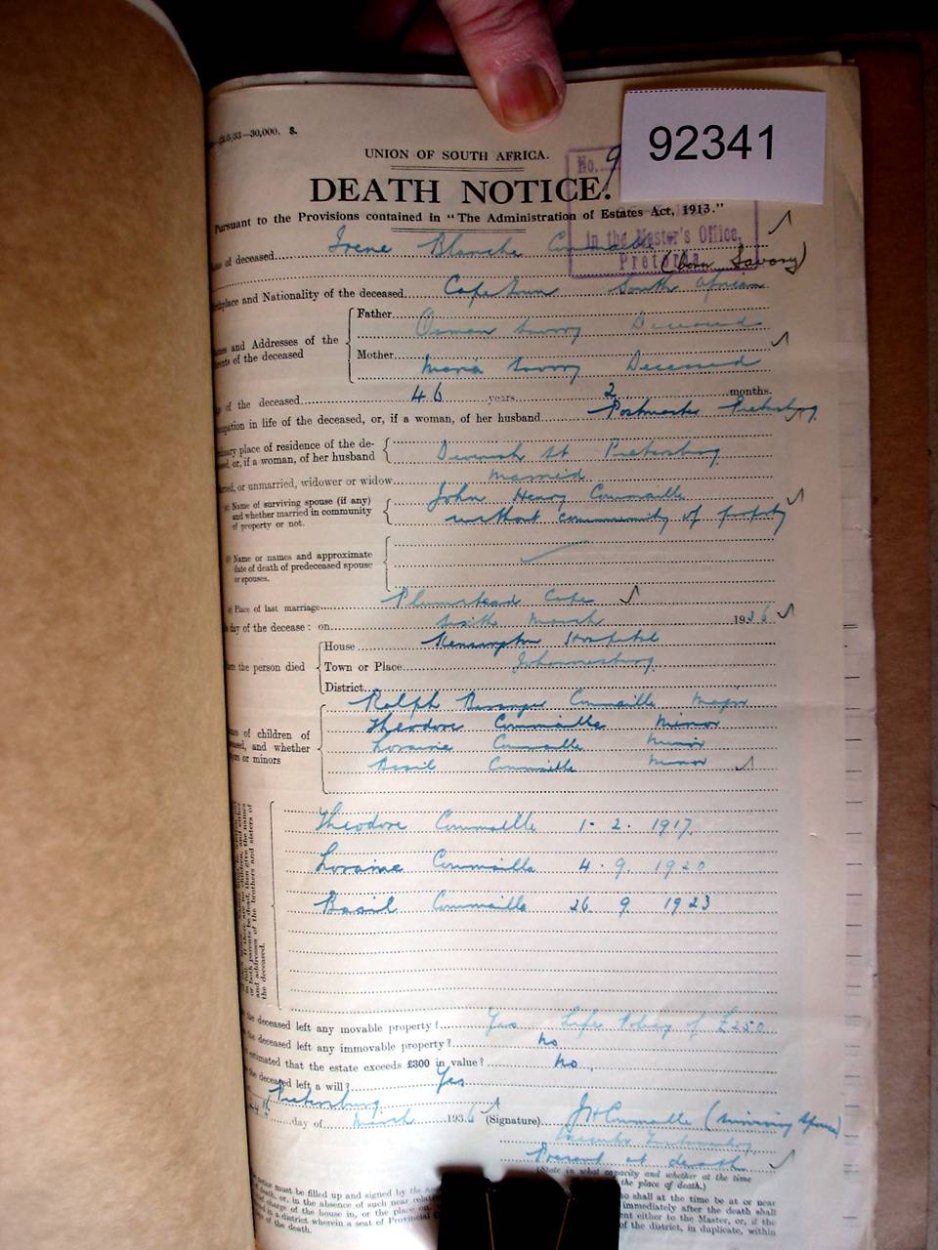 33—30,000. S.
92341
UNION OF SOUTH AFRICA.
No. 9
DEATH NOTICE.
Pursuant to the Provisions contained in "The Administration of Estates Act, 1913."
in the Master's Office,
Pretoria
of deceased Irene Blanche Commaille
(born Savory)
Birthplace and Nationality of the deceased Cape Town South African
Father Osman Savory Deceased
and Addresses of the
of the deceased
Mother Maria Savory Deceased
of the deceased 46 years 2 months.
in life of the deceased, or, if a woman, of her husband Postmaster Pietersburg
place of residence of the de-
or, if a woman, of her husband
St Pietersburg
or unmarried, widower or widow married
Name of surviving spouse (if any)
and whether married in community
of property or not.
John Henry Commaille
without community of property
Name or names and approximate
date of death of predeceased spouse
or spouses.
Place of last marriage Plumstead Cape
day of the decease: on March 1936
House Kensington Hospital
the person died
Town or Place Johannesburg
District
of children of
and whether
or minors
Ralph Commaille Major
Theodore Commaille Minor
Loraine Commaille Minor
Basil Commaille Minor
and addresses of the brothers and sisters of
the deceased.
Theodore Commaille 1 - 2 . 1917.
Loraine Commaille 4 . 9 . 1920
Basil Commaille 26 9 1923
the deceased left any movable property? Yes Life Policy of £250
the deceased left any immovable property? No
estimated that the estate exceeds £300 in value? No.
the deceased left a will? Yes
Pietersburg
day of March 1936 (Signature) JHCommaille (surviving spouse)
Executor Testamentary
Present at death
(State in what capacity and whether at the time
the place of death.)
must be filled up and signed by the
death, or, in the absence of such near
charge of the house in, or the place on,
in a district wherein a seat of Provincial
of the death.
who shall at the time be at or near
immediately after the death shall
either to the Master, or, if the
of the district, in duplicate, within